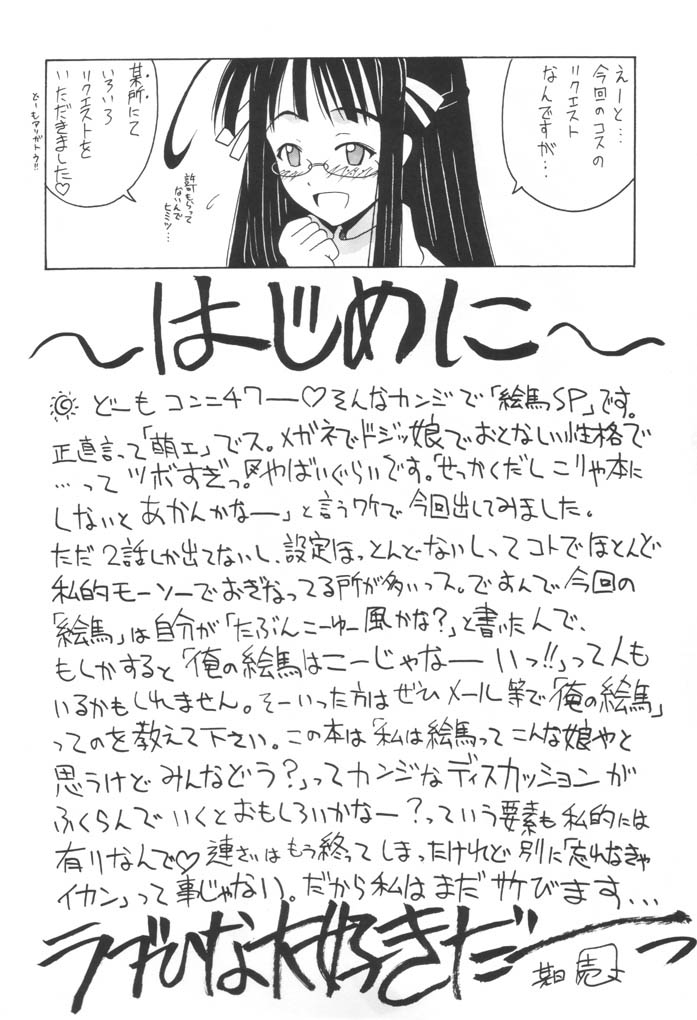 えーと…
今回のコスの
リクエスト
なんですが…
某所にて
いろいろ
リクエストを
いただきました♡
どーもアリガトウ!!
許可もらって
ないんで
ヒミツ…
～はじめに～
どーもコンニチワー♡そんなカンジで「絵馬SP」です。
正直言って「萌エ」でス。メガネでドジッ娘でおとなしい性格で
…ってツボすぎっ。やばいぐらいです。「せっかくだしこりゃ本に
しないとあかんかなー」と言うワケで今回出してみました。
ただ2話しか出てないし、設定ほっとんどないしってコトでほとんど
私的モーソーでおぎなってる所が多いっス。ですんで今回の
「絵馬」は自分が「たぶんこーゆー風かな?」と書いたんで、
もしかすると「俺の絵馬はこーじゃなーいっ!!」って人も
いるかもしれません。そーいった方はぜひメール等で「俺の絵馬」
ってのを教えて下さい。この本は「私は絵馬ってこんな娘やと
思うけどみんなどう?」ってカンジなディスカッションが
ふくらんでいくとおもしろいかなー?っていう要素も私的には
有りなんで♡連さいはもう終ってしまったけれど別に「忘れなきゃ
イカン」って事じゃない。だから私はまだサケびます…
ラブひな大好きだーーっ